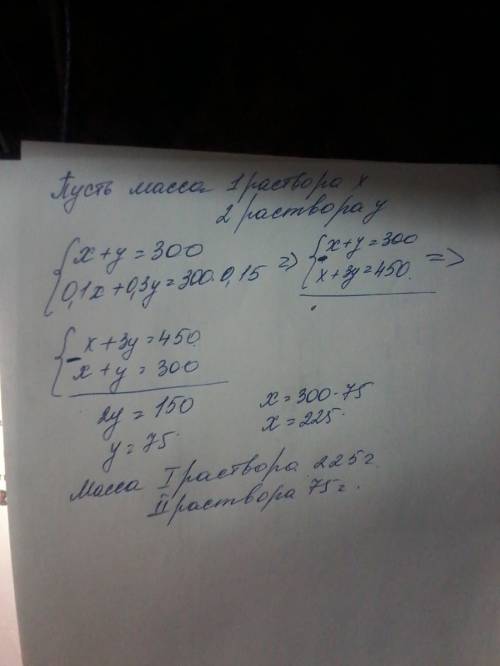 Пусть масса 1 раствора x
2 раствора y
{ x+y=300
0,1x+0,3y=300·0,15 => { x+y=300
x+3y=450. =>
{ - x+3y=450.
x+y=300
2y=150
y=75.
x=300-75
x=225.
Масса I раствора 225г.
II раствора 75г.